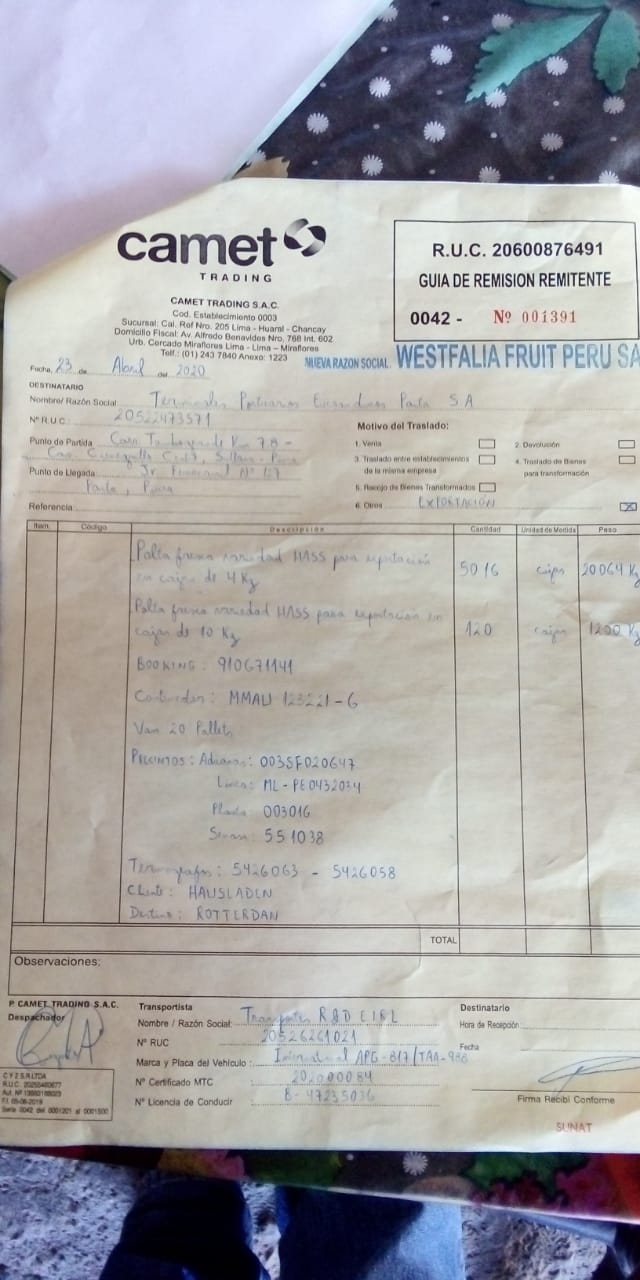 camet
TRADING
R.U.C. 20600876491
GUIA DE REMISION REMITENTE
0042 - Nº 001391
CAMET TRADING S.A.C.
Cod. Establecimiento 0003
Sucursal: Cal. Ref Nro. 205 Lima - Huaral - Chancay
Domicilio Fiscal: Av. Alfredo Benavides Nro. 768 Int. 602
Urb. Cercado Miraflores Lima - Lima - Miraflores
Telf.: (01) 243 7840 Anexo: 1223
NUEVA RAZON SOCIAL WESTFALIA FRUIT PERU SA
Fecha, 23 de Abril del 2020
DESTINATARIO
Nombre/ Razón Social Terminales Portuarios Euroandinos Paita S A
N° R.U.C. 20522473571
Motivo del Traslado:
Punto de Partida
1. Venta
2. Devolución
3. Traslado entre establecimientos de la misma empresa
4. Traslado de Bienes para transformación
Punto de Llegada Jr. N°
Paita, Piura
5. Recojo de Bienes Transformados
6. Otros EXPORTACIÓN
Referencia
Item. Código Descripción Cantidad Unidad de Medida Peso
Palta fresca variedad HASS para exportación
en cajas de 4 Kg 5016 cajas 20064 Kg
Palta fresca variedad HASS para exportación en
cajas de 10 Kg 120 cajas 1200 Kg
BOOKING: 910671141
Contenedor: MMAU 123221-6
Van 20 Pallets
PRECINTOS: Aduanas: 003SF020647
Linea: ML-PE0432034
003016
Senasa: 551038
Termografos: 5426063 - 5426058
Cliente: HAUSLADEN
Destino: ROTTERDAN
TOTAL
Observaciones:
P. CAMET TRADING S.A.C.
Despachador
Transportista
Nombre / Razón Social: Transportes R&D EIRL
N° RUC 20526261021
Marca y Placa del Vehículo: International APG-817/TAA-988
N° Certificado MTC 202000084
N° Licencia de Conducir B-47235036
Destinatario
Hora de Recepción
Fecha
Firma Recibí Conforme
C Y Z S.R.LTDA
Serie 0042 del 0001201 al 0001500
SUNAT